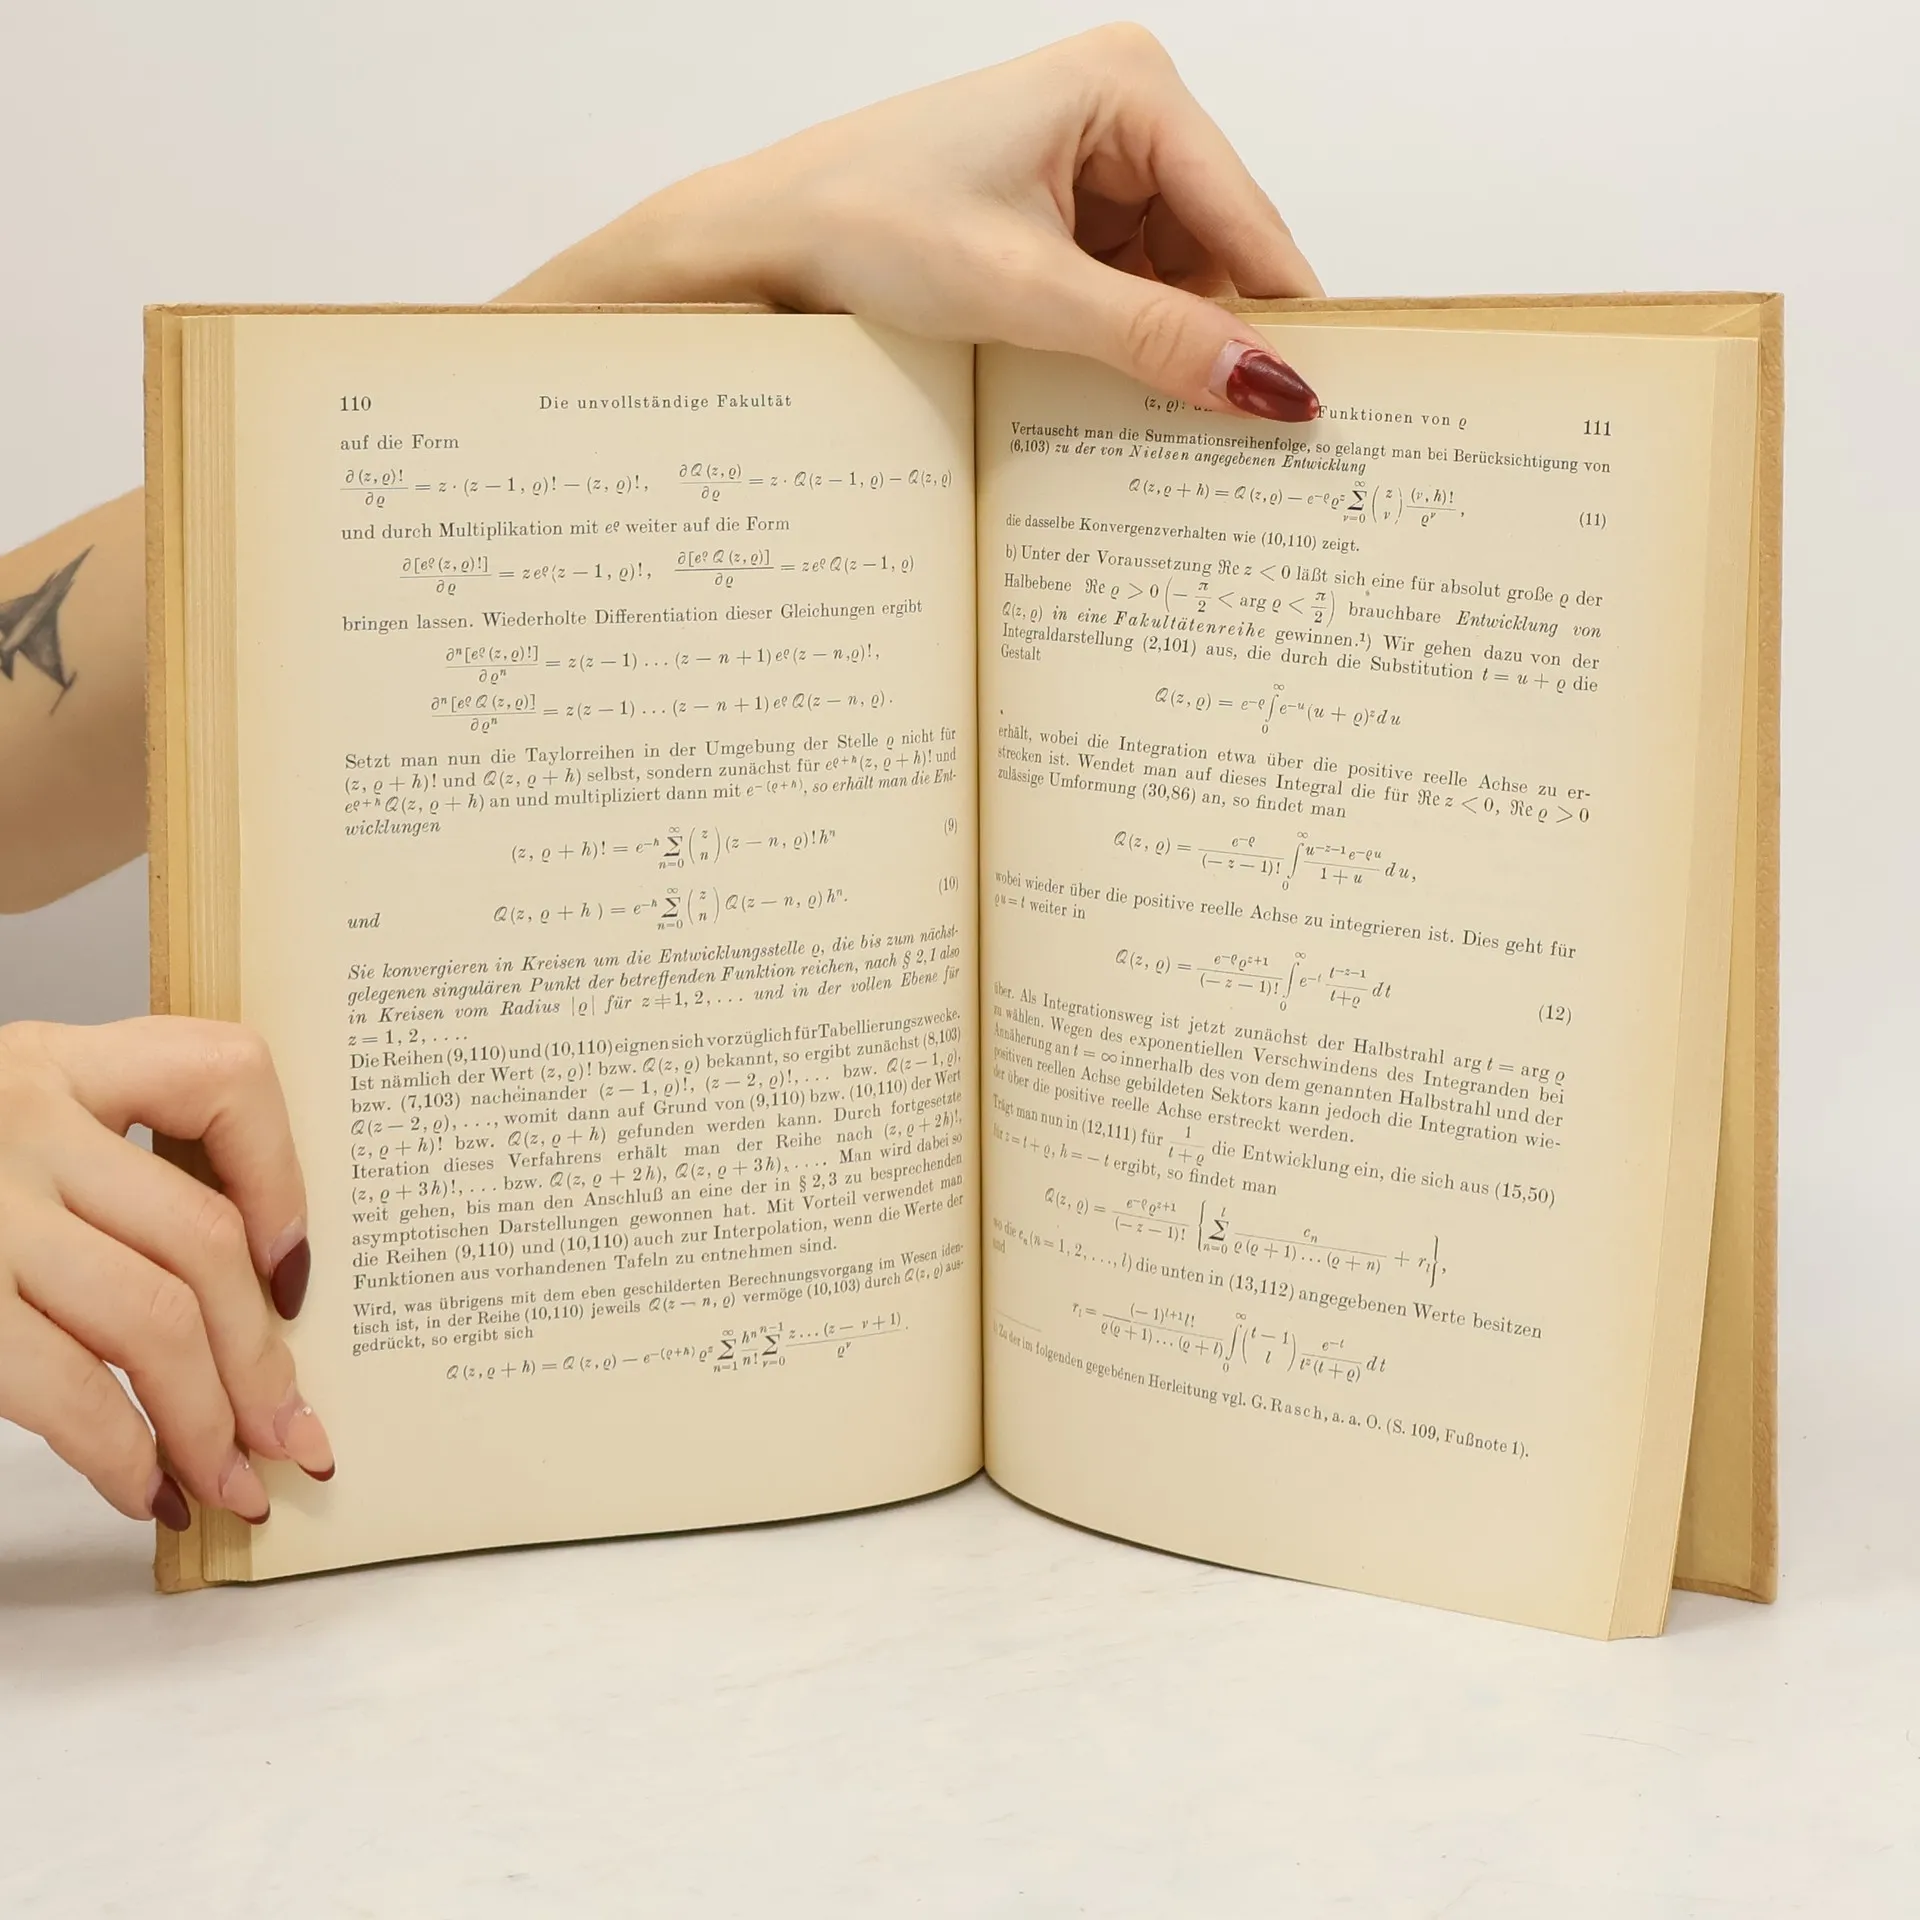 110 Die unvollständige Fakultät
auf die Form
∂(z, ϱ)!/∂ϱ = z · (z − 1, ϱ)! − (z, ϱ)!, ∂Q(z, ϱ)/∂ϱ = z · Q(z − 1, ϱ) − Q(z, ϱ)
und durch Multiplikation mit e^ϱ weiter auf die Form
∂[e^ϱ (z, ϱ)!]/∂ϱ = z e^ϱ (z − 1, ϱ)!, ∂[e^ϱ Q(z, ϱ)]/∂ϱ = z e^ϱ Q(z − 1, ϱ)
bringen lassen. Wiederholte Differentiation dieser Gleichungen ergibt
∂^n[e^ϱ (z, ϱ)!]/∂ϱ^n = z(z − 1) . . . (z − n + 1) e^ϱ (z − n, ϱ)!,
∂^n[e^ϱ Q(z, ϱ)]/∂ϱ^n = z(z − 1) . . . (z − n + 1) e^ϱ Q(z − n, ϱ).
Setzt man nun die Taylorreihen in der Umgebung der Stelle ϱ nicht für
(z, ϱ + h)! und Q(z, ϱ + h) selbst, sondern zunächst für e^(ϱ+h) (z, ϱ + h)! und
e^(ϱ+h) Q(z, ϱ + h) an und multipliziert dann mit e^−(ϱ+h), so erhält man die Ent-
wicklungen
(z, ϱ + h)! = e^−h ∑_{n=0}^∞ (z n) (z − n, ϱ)! h^n (9)
und Q(z, ϱ + h) = e^−h ∑_{n=0}^∞ (z n) Q(z − n, ϱ) h^n. (10)
Sie konvergieren in Kreisen um die Entwicklungsstelle ϱ, die bis zum nächst-
gelegenen singulären Punkt der betreffenden Funktion reichen, nach § 2,1 also
in Kreisen vom Radius |ϱ| für z ≠ 1, 2, . . . und in der vollen Ebene für
z = 1, 2, . . . .
Die Reihen (9,110) und (10,110) eignen sich vorzüglich für Tabellierungszwecke.
Ist nämlich der Wert (z, ϱ)! bzw. Q(z, ϱ) bekannt, so ergibt zunächst (8,103)
bzw. (7,103) nacheinander (z − 1, ϱ)!, (z − 2, ϱ)!, . . . bzw. Q(z − 1, ϱ),
Q(z − 2, ϱ), . . ., womit dann auf Grund von (9,110) bzw. (10,110) der Wert
(z, ϱ + h)! bzw. Q(z, ϱ + h) gefunden werden kann. Durch fortgesetzte
Iteration dieses Verfahrens erhält man der Reihe nach (z, ϱ + 2h)!,
(z, ϱ + 3h)!, . . . bzw. Q(z, ϱ + 2h), Q(z, ϱ + 3h), . . . . Man wird dabei so
weit gehen, bis man den Anschluß an eine der in § 2,3 zu besprechenden
asymptotischen Darstellungen gewonnen hat. Mit Vorteil verwendet man
die Reihen (9,110) und (10,110) auch zur Interpolation, wenn die Werte der
Funktionen aus vorhandenen Tafeln zu entnehmen sind.
Wird, was übrigens mit dem eben geschilderten Berechnungsvorgang im Wesen iden-
tisch ist, in der Reihe (10,110) jeweils Q(z − n, ϱ) vermöge (10,103) durch Q(z, ϱ) aus-
gedrückt, so ergibt sich
Q(z, ϱ + h) = Q(z, ϱ) − e^−(ϱ+h) ϱ^z ∑_{n=1}^∞ h^n/n! ∑_{ν=0}^{n−1} z . . . (z − ν + 1)/ϱ^ν .
(z, ϱ)! Funktionen von ϱ 111
Vertauscht man die Summationsreihenfolge, so gelangt man bei Berücksichtigung von
(6,103) zu der von Nielsen angegebenen Entwicklung
Q(z, ϱ + h) = Q(z, ϱ) − e^−ϱ ϱ^z ∑_{ν=0}^∞ (z ν) (ν, h)!/ϱ^ν , (11)
die dasselbe Konvergenzverhalten wie (10,110) zeigt.
b) Unter der Voraussetzung ℜe z < 0 läßt sich eine für absolut große ϱ der
Halbebene ℜe ϱ > 0 (−π/2 < arg ϱ < π/2) brauchbare Entwicklung von
Q(z, ϱ) in eine Fakultätenreihe gewinnen.¹) Wir gehen dazu von der
Integraldarstellung (2,101) aus, die durch die Substitution t = u + ϱ die
Gestalt
Q(z, ϱ) = e^−ϱ ∫_0^∞ e^−u (u + ϱ)^z du
erhält, wobei die Integration etwa über die positive reelle Achse zu er-
strecken ist. Wendet man auf dieses Integral die für ℜe z < 0, ℜe ϱ > 0
zulässige Umformung (30,86) an, so findet man
Q(z, ϱ) = e^−ϱ/(− z − 1)! ∫_0^∞ u^−z−1 e^−ϱu/(1 + u) du,
wobei wieder über die positive reelle Achse zu integrieren ist. Dies geht für
ϱu = t weiter in
Q(z, ϱ) = e^−ϱ ϱ^z+1/(− z − 1)! ∫_0^∞ e^−t t^−z−1/(t+ϱ) dt (12)
über. Als Integrationsweg ist jetzt zunächst der Halbstrahl arg t = arg ϱ
zu wählen. Wegen des exponentiellen Verschwindens des Integranden bei
Annäherung an t = ∞ innerhalb des von dem genannten Halbstrahl und der
positiven reellen Achse gebildeten Sektors kann jedoch die Integration wie-
der über die positive reelle Achse erstreckt werden.
Trägt man nun in (12,111) für 1/(t+ϱ) die Entwicklung ein, die sich aus (15,50)
für z = t + ϱ, h = − t ergibt, so findet man
Q(z, ϱ) = e^−ϱ ϱ^z+1/(− z − 1)! {∑_{n=0}^l c_n/(ϱ(ϱ + 1) . . . (ϱ + n)) + r_l},
wo die c_n (n = 1, 2, . . ., l) die unten in (13,112) angegebenen Werte besitzen
und
r_l = (− 1)^(l+1) l!/(ϱ(ϱ + 1) . . . (ϱ + l)) ∫_0^∞ (t − 1 l) e^−t/(t^z (t + ϱ)) dt
¹) Zu der im folgenden gegebenen Herleitung vgl. G. Rasch, a. a. O. (S. 109, Fußnote 1).